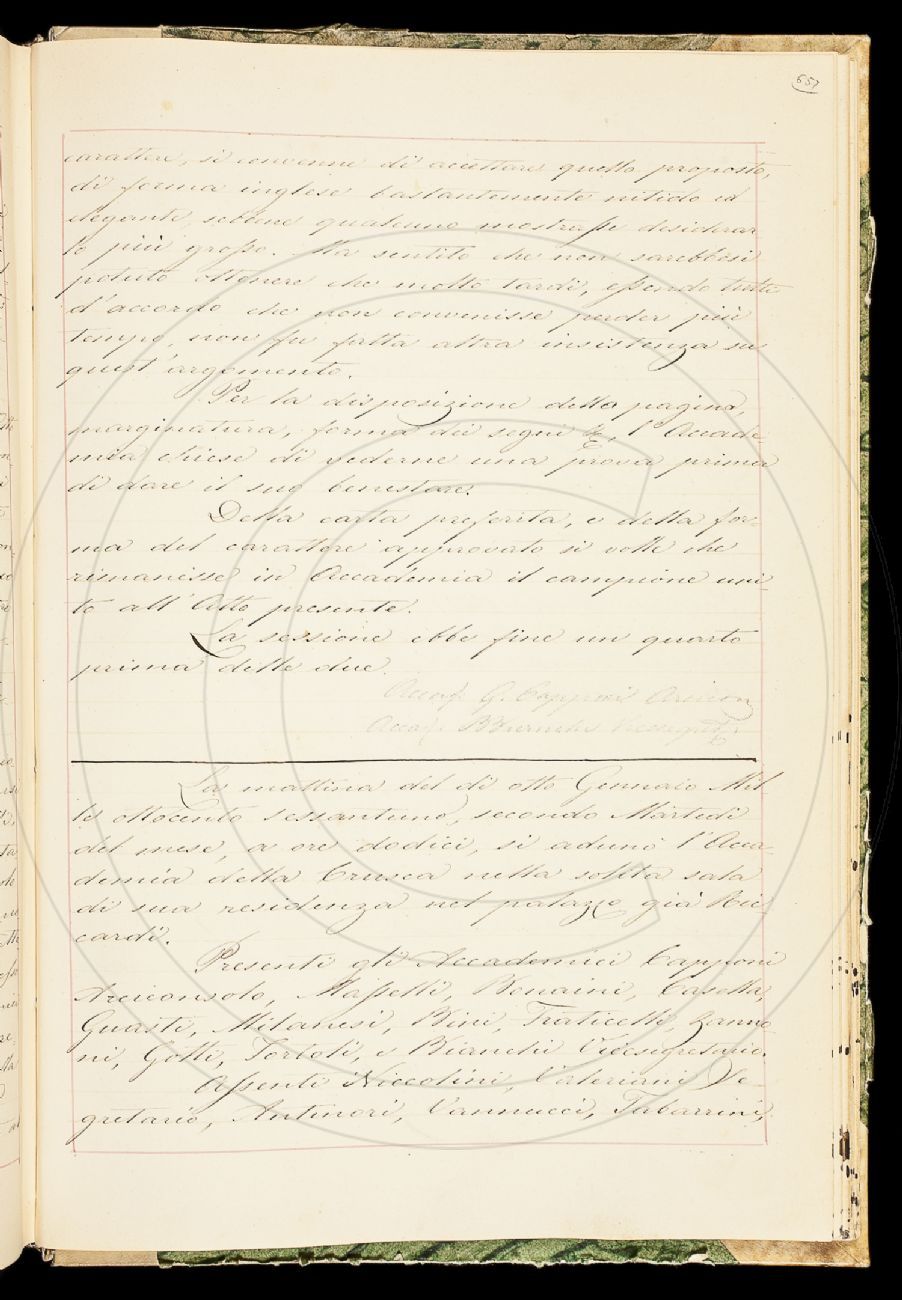 657
carattere, si convenne di accettare quello proposto,
di forma inglese bastantemente nitido ed
elegante, sebbene qualcuno mostrasse desiderar
lo più grosso. Ma sentito che non sarebbesi
potuto ottenere che molto tardi, essendo tutti
d'accordo che non convenisse perder più
tempo, non fu fatta altra insistenza su
quest'argomento.
Per la disposizione della pagina,
marginatura, forma dei segni &, l'Accade
mia chiese di vederne una prova prima
di dare il suo benestare.
Della carta preferita, e della for-
ma del carattere approvato si volle che
rimanisse in Accademia il campione uni-
to all'Atto presente.
La sessione ebbe fine un quarto
prima delle due.
Accad. G. Capponi Arcicon
Accad. B Bianchi Vicesegret.
La mattina del dì otto Gennaio Mil
le ottocento sessantuno, secondo Martedì
del mese, a ore dodici, si adunò l'Acca-
demia della Crusca nella solita sala
di sua residenza nel palazzo già Ric-
cardi.
Presenti gli Accademici Capponi
Arciconsolo, Masselli, Bonaini, Casella,
Guasti, Milanesi, Bini, Fraticelli, Zanno
ni, Gotti, Tortoli, e Bianchi Vicesegretario.
Assenti Niccolini, Valeriani Se-
gretario, Antinori, Vannucci, Tabarrini,